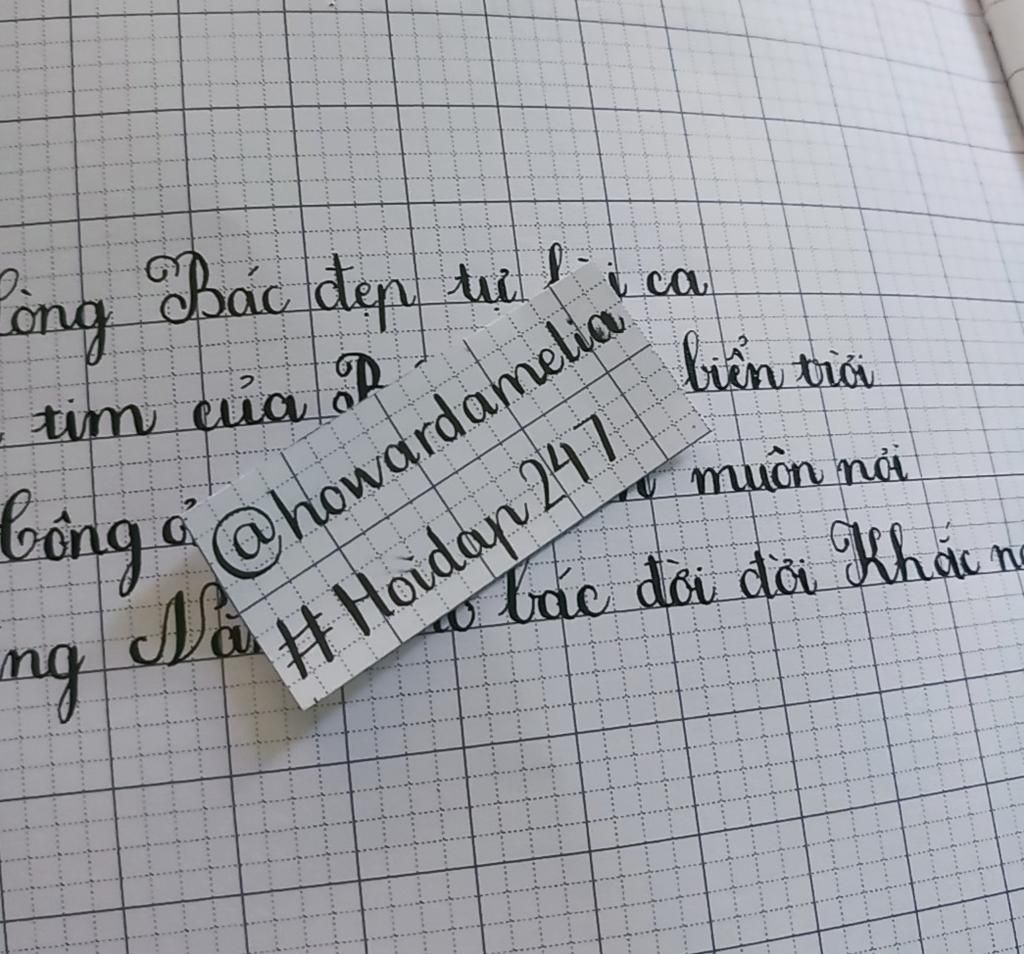 Bác đẹp tự ca
tim của biển trời
Công muôn nơi
bác đời đời Khắc
@howardamelia
#Hoidap247